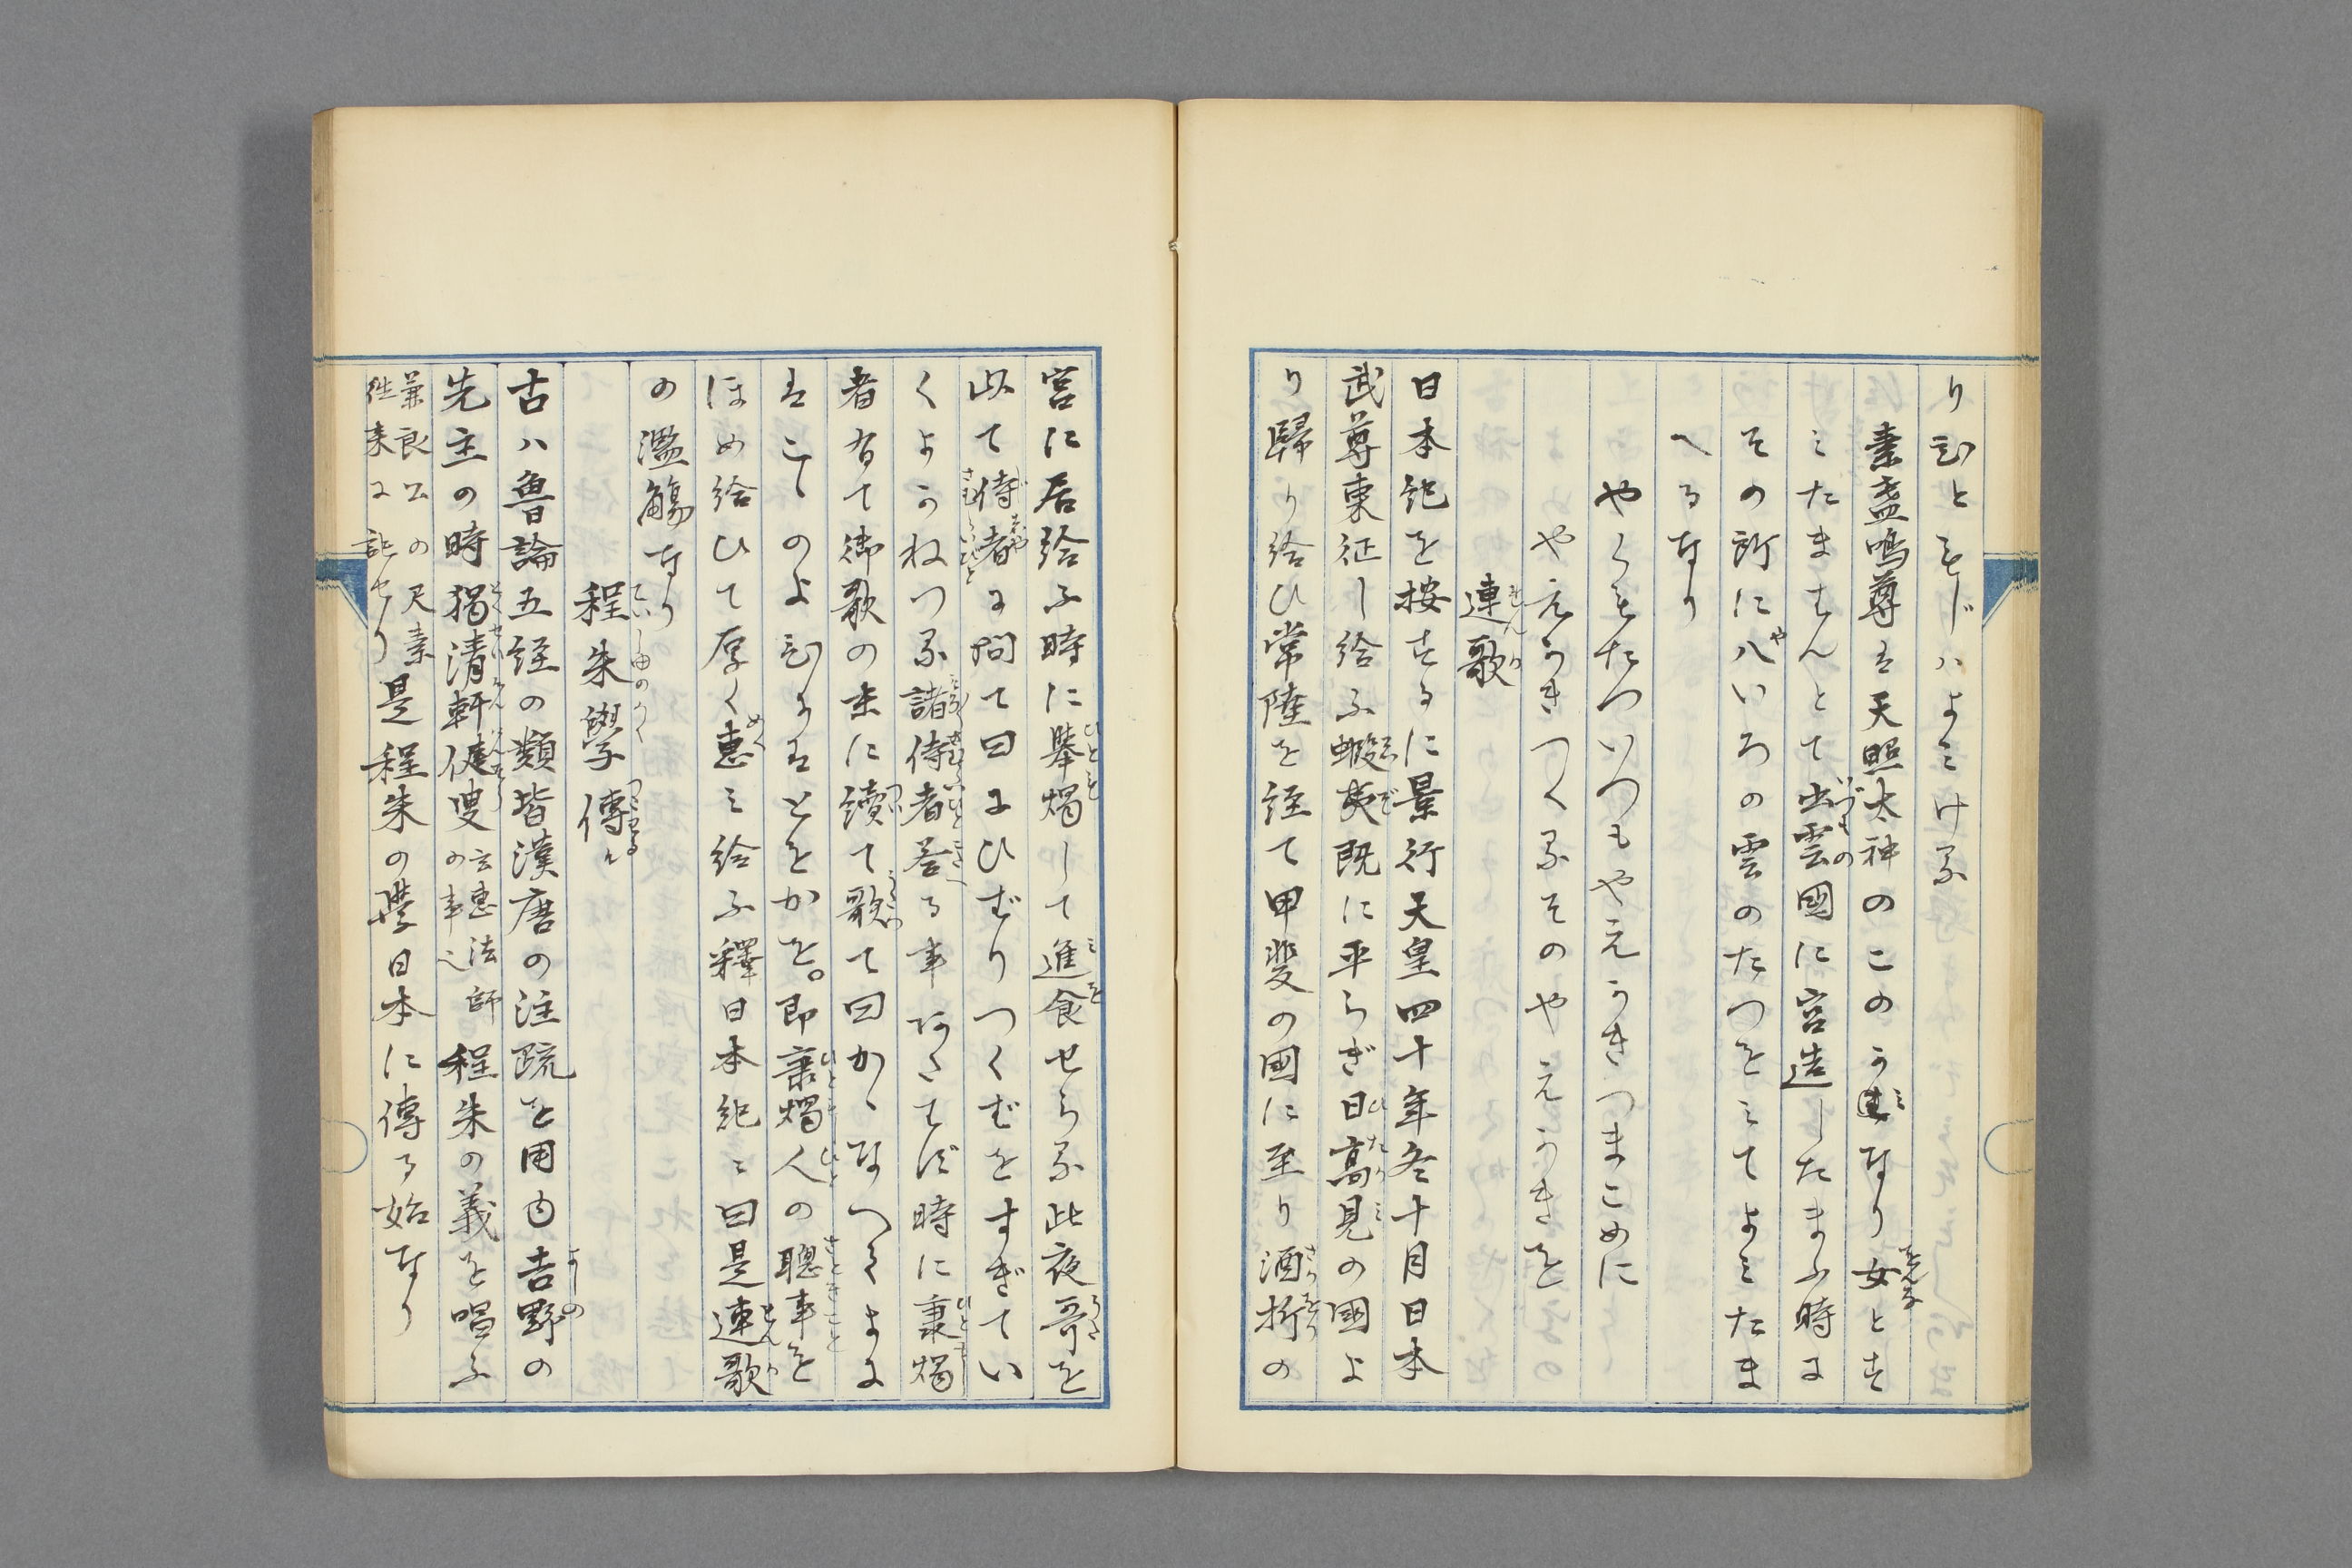 りひともじハよミける
素盞嗚尊は天照太神のこのうミなり女とす
ミたまはんとて出雲國に宮造したまふ時に
その所に八いろの雲のたつをミてよミたま
へるなり
やくもたついつもやえうきつまこめに
やえうきつくるそのやえうきを
連歌
日本紀を按するに景行天皇四十年冬十月日本
武尊東征し給ふ蝦夷既に平らぎ日高見の國よ
り歸り給ひ常陸を経て甲斐の國に至り酒折の
宮に居給ふ時に擧燭して進食せらる此夜哥を
以て侍者に問て曰にひばりつくばをすぎてい
くよかねつる諸侍者答る事あたはず時に秉燭
者有て御歌の末に續て歌て曰かゝなへてよに
はこゝのよひにはとをかを。即秉燭人の聰事を
ほめ給ひて厚く惠ミ給ふ釋日本紀ニ曰是連歌
の濫觴なり
程朱學傳ル
古ハ魯論五経の類皆漢唐の注疏を用ゆ吉野の
先主の時獨清軒健叟玄惠法師の事也程朱の義を唱ふ
兼良公の尺素往来に記せり是程朱の學日本に傳る始なり